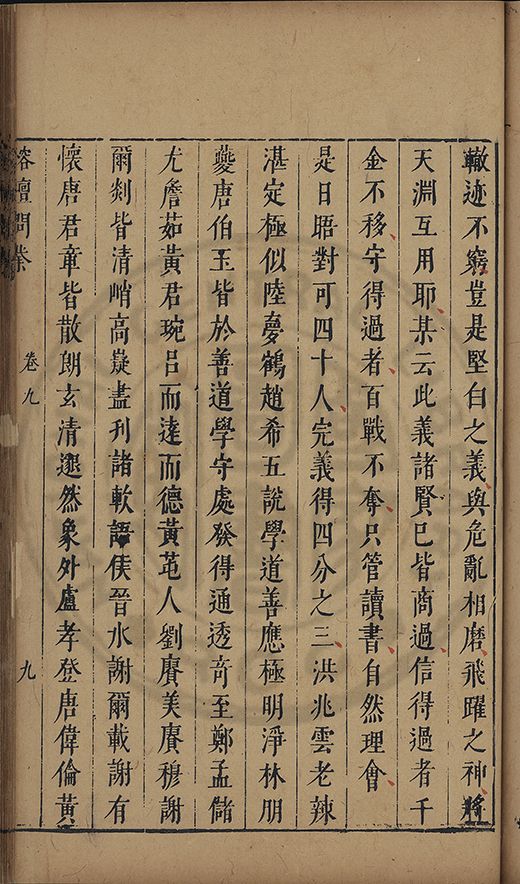 轍迹不窮豈是堅白之義與危亂相磨飛躍之神將
天淵互用耶某云此義諸賢巳皆商過信得過者千
金不移守得過者百戰不奪只管讀書自然理會
是日晤對可四十人完義得四分之三洪兆雲老辣
湛定極似陸夢鶴趙希五說學道善應極明淨林朋
夔唐伯玉皆於善道學守處發得通透奇至鄭孟儲
尤詹茹黃君琬呂而遠而德黃芚人劉賡美賡穆謝
爾剡皆清峭高嶷盡刋諸軟語侯晉水謝爾載謝有
懷唐君章皆散朗玄清邈然象外盧孝登唐偉倫黃
榕壇問業
卷九
九